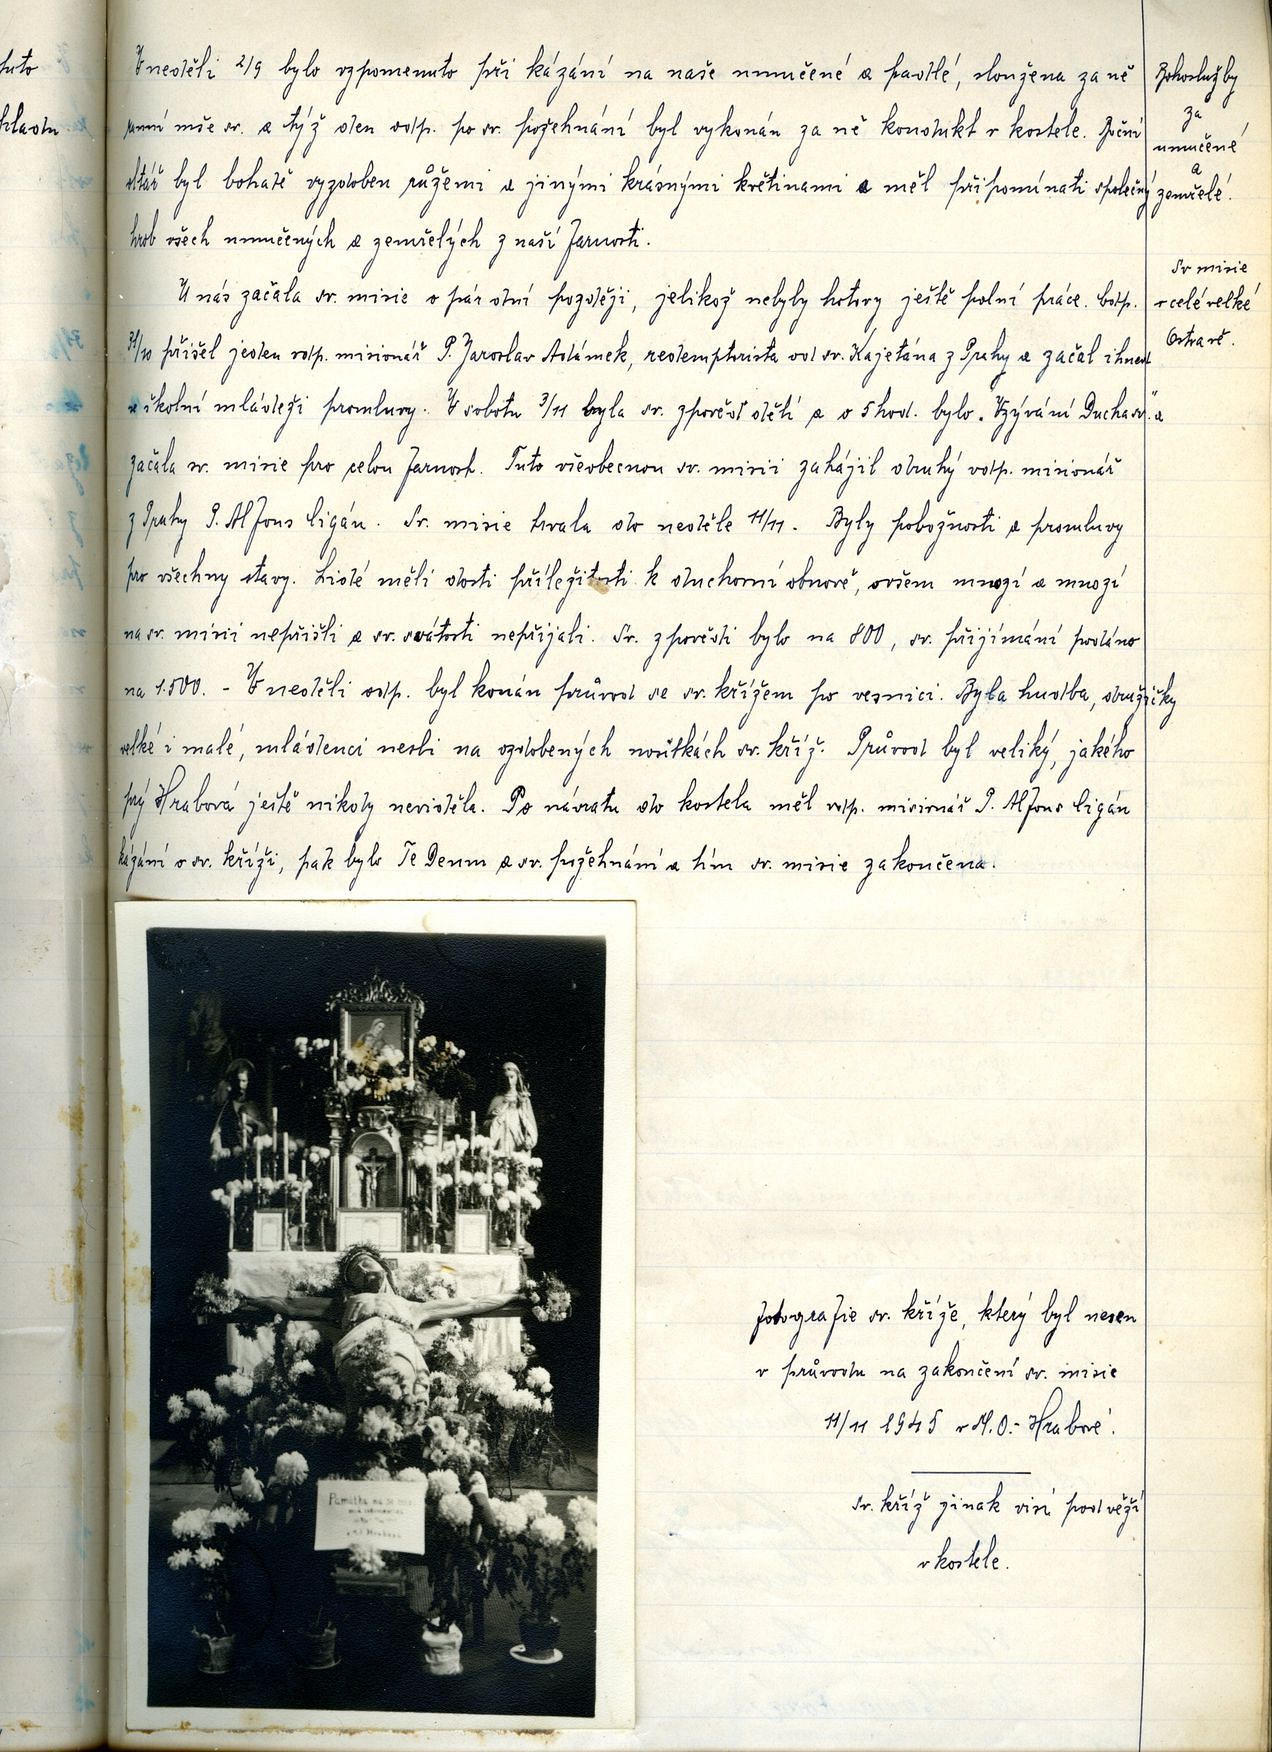 V neděli 2/9 bylo vzpomenuto při kázání na naše umučené a padlé, sloužena za ně
ranní mše sv. a týž den odp. po sv. požehnání byl vykonán za ně kondukt v kostele. Boční
oltář byl bohatě vyzdoben růžemi a jinými krásnými květinami a měl připomínati společný
hrob všech umučených a zemřelých z naší farnosti.
Bohoslužby
za
umučené
a
zemřelé.
U nás začala sv. misie o pár dní později, jelikož nebyly hotovy ještě polní práce. Dodp.
31/10 přišel jeden vdp. misionář P. Jaroslav Adámek, redemptorista od sv. Kajetána z Prahy a začal ihned
u školní mládeži promluvy. V sobotu 3/11 byla sv. zpověď dětí a o 5 hod. bylo „Vzývání Ducha sv.“ a
začala sv. misie pro celou farnost. Tuto všeobecnou sv. misii zahájil druhý vdp. misionář
z Prahy P. Alfons Cigán. Sv. misie trvala do neděle 11/11. Byly pobožnosti a promluvy
pro všechny stavy. Lidé měli dosti příležitosti k duchovní obnově, ovšem mnozí a mnozí
na sv. misii nepřišli a sv. svátosti nepřijali. Sv. zpovědi bylo na 800, sv. přijímání podáno
na 1.500. - V neděli odp. byl konán průvod se sv. křížem po vesnici. Byla hudba, družičky
velké i malé, mládenci nesli na ozdobených nosítkách sv. kříž. Průvod byl veliký, jakého
prý Hrabová ještě nikdy neviděla. Po návratu do kostela měl vdp. misionář P. Alfons Cigán
kázání o sv. kříži, pak bylo Te Deum a sv. požehnání a tím sv. misie zakončena.
Sv misie
v celé velké
Ostravě.
Památka na sv. misii
Fotografie sv. kříže, který byl nesen
v průvodu na zakončení sv. misie
11/11 1945 v M.O.-Hrabové.
Sv. kříž jinak visí pod věží
v kostele.
tuto